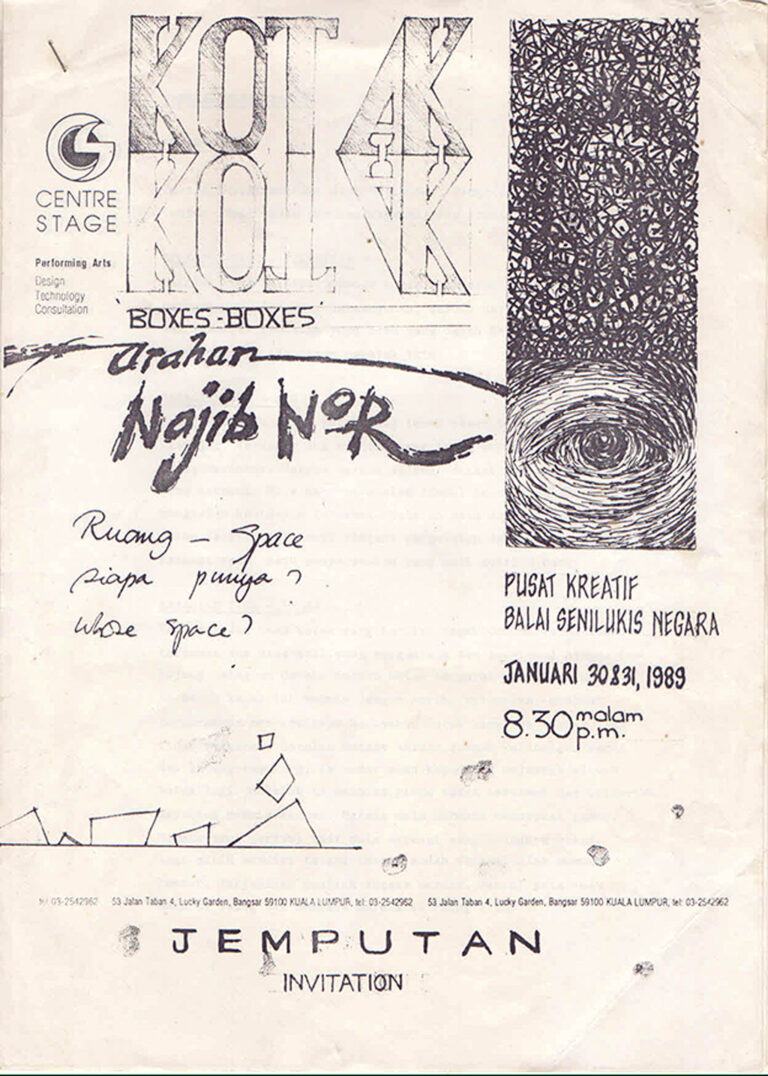 KOTAK
KOTAK
CENTRE
STAGE
Performing Arts
Design
Technology
Consultation
'BOXES-BOXES'
arahan
Najib NoR
Ruang – Space
siapa punya?
whose space?
PUSAT KREATIF
BALAI SENILUKIS NEGARA
JANUARI 30&31, 1989
8.30 malam
p.m.
03-2542962 53 Jalan Taban 4, Lucky Garden, Bangsar 59100 KUALA LUMPUR, tel: 03-2542962 53 Jalan Taban 4, Lucky Garden, Bangsar 59100 KUALA LUMPUR, tel: 03-2542962
JEMPUTAN
INVITATION